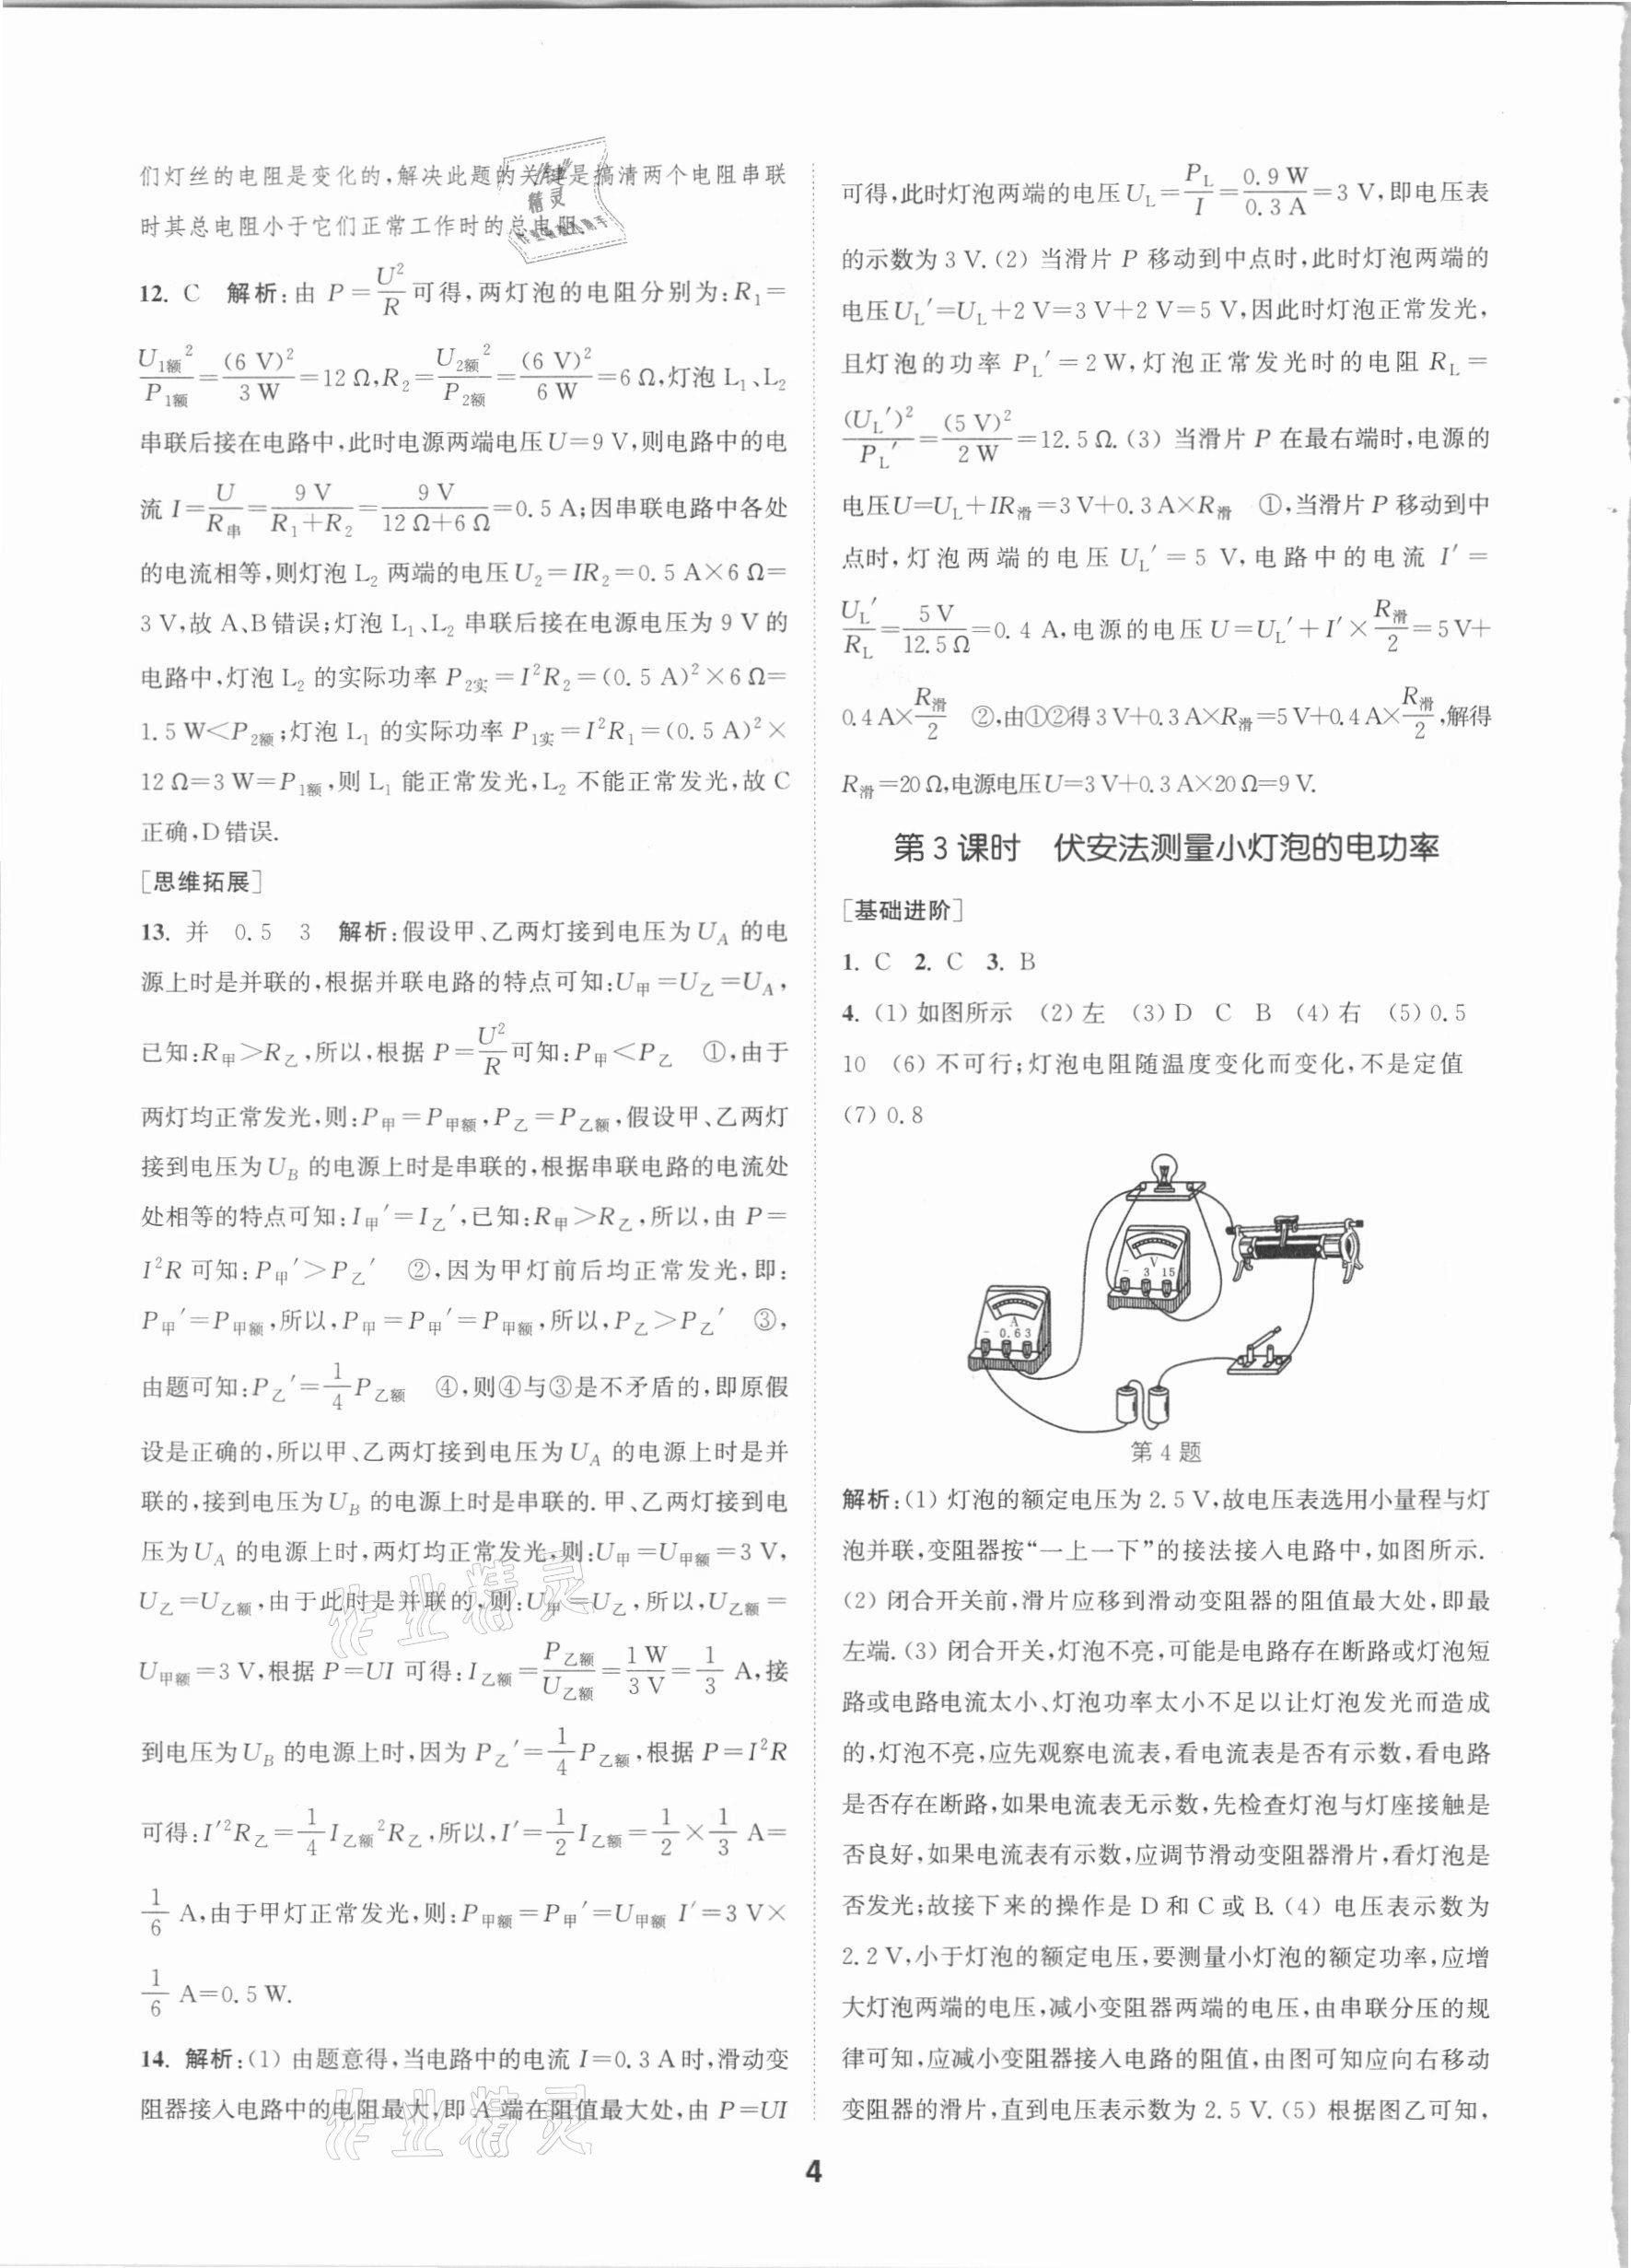 们灯丝的电阻是变化的,解决此题的关键是搞清两个电阻串联
时其总电阻小于它们正常工作时的总电阻.
12. C 解析:由 P=U²/R可得,两灯泡的电阻分别为:R₁=
U₁额²/P₁额=(6 V)²/3 W=12 Ω,R₂=U₂额²/P₂额=(6 V)²/6 W=6 Ω,灯泡 L₁、L₂
串联后接在电路中,此时电源两端电压U=9 V,则电路中的电
流 I=U/R串=9 V/(R₁+R₂)=9 V/(12 Ω+6 Ω)=0.5 A;因串联电路中各处
的电流相等,则灯泡 L₂ 两端的电压U₂=IR₂=0.5 A×6 Ω=
3 V,故 A、B错误;灯泡 L₁、L₂ 串联后接在电源电压为 9 V 的
电路中,灯泡 L₂ 的实际功率 P₂实=I²R₂=(0.5 A)²×6 Ω=
1.5 W<P₂额;灯泡 L₁ 的实际功率 P₁实=I²R₁=(0.5 A)²×
12 Ω=3 W=P₁额,则 L₁ 能正常发光,L₂ 不能正常发光,故 C
正确,D错误.
[思维拓展]
13. 并 0.5 3 解析:假设甲、乙两灯接到电压为U_A 的电
源上时是并联的,根据并联电路的特点可知:U甲=U乙=U_A,
已知:R甲>R乙,所以,根据 P=U²/R可知:P甲<P乙 ①,由于
两灯均正常发光,则:P甲=P甲额,P乙=P乙额,假设甲、乙两灯
接到电压为U_B 的电源上时是串联的,根据串联电路的电流处
处相等的特点可知:I甲′=I乙′,已知:R甲>R乙,所以,由 P=
I²R 可知:P甲′>P乙′ ②,因为甲灯前后均正常发光,即:
P甲′=P甲额,所以,P甲=P甲′=P甲额,所以,P乙>P乙′ ③,
由题可知:P乙′=1/4P乙额 ④,则④与③是不矛盾的,即原假
设是正确的,所以甲、乙两灯接到电压为U_A 的电源上时是并
联的,接到电压为U_B 的电源上时是串联的. 甲、乙两灯接到电
压为U_A 的电源上时,两灯均正常发光,则:U甲=U甲额=3 V,
U乙=U乙额,由于此时是并联的,则:U甲=U乙,所以,U乙额=
U甲额=3 V,根据 P=UI 可得:I乙额=P乙额/U乙额=1 W/3 V=1/3 A,接
到电压为U_B 的电源上时,因为 P乙′=1/4P乙额,根据 P=I²R
可得:I′²R乙=1/4I乙额²R乙,所以,I′=1/2I乙额=1/2×1/3 A=
1/6 A,由于甲灯正常发光,则:P甲额=P甲′=U甲额 I′=3 V×
1/6 A=0.5 W.
14. 解析:(1) 由题意得,当电路中的电流 I=0.3 A时,滑动变
阻器接入电路中的电阻最大,即 A 端在阻值最大处,由 P=UI
可得,此时灯泡两端的电压U_L=P_L/I=0.9 W/0.3 A=3 V,即电压表
的示数为3 V.(2) 当滑片 P 移动到中点时,此时灯泡两端的
电压U_L′=U_L+2 V=3 V+2 V=5 V,因此时灯泡正常发光,
且灯泡的功率 P_L′=2 W,灯泡正常发光时的电阻 R_L=
(U_L′)²/P_L′=(5 V)²/2 W=12.5 Ω.(3) 当滑片 P 在最右端时,电源的
电压U=U_L+IR滑=3 V+0.3 A×R滑 ①,当滑片P移动到中
点时,灯泡两端的电压 U_L′=5 V,电路中的电流 I′=
U_L′/R_L=5 V/12.5 Ω=0.4 A,电源的电压U=U_L′+I′×R滑/2=5 V+
0.4 A×R滑/2 ②,由①②得3 V+0.3 A×R滑=5 V+0.4 A×R滑/2,解得
R滑=20 Ω,电源电压U=3 V+0.3 A×20 Ω=9 V.
第 3 课时 伏安法测量小灯泡的电功率
[基础进阶]
1. C 2. C 3. B
4. (1) 如图所示 (2) 左 (3) D C B (4) 右 (5) 0.5
10 (6) 不可行;灯泡电阻随温度变化而变化,不是定值
(7) 0.8
V
- 3 15
A
- 0.6 3
第 4 题
解析:(1) 灯泡的额定电压为 2.5 V,故电压表选用小量程与灯
泡并联,变阻器按“一上一下”的接法接入电路中,如图所示.
(2) 闭合开关前,滑片应移到滑动变阻器的阻值最大处,即最
左端.(3) 闭合开关,灯泡不亮,可能是电路存在断路或灯泡短
路或电路电流太小、灯泡功率太小不足以让灯泡发光而造成
的,灯泡不亮,应先观察电流表,看电流表是否有示数,看电路
是否存在断路,如果电流表无示数,先检查灯泡与灯座接触是
否良好,如果电流表有示数,应调节滑动变阻器滑片,看灯泡是
否发光;故接下来的操作是 D 和 C 或 B.(4) 电压表示数为
2.2 V,小于灯泡的额定电压,要测量小灯泡的额定功率,应增
大灯泡两端的电压,减小变阻器两端的电压,由串联分压的规
律可知,应减小变阻器接入电路的阻值,由图可知应向右移动
变阻器的滑片,直到电压表示数为 2.5 V.(5) 根据图乙可知,
4
作业精灵
作业精灵